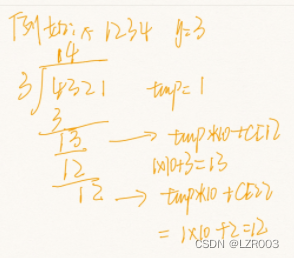 1234 y=3
14
3 4321 tmp=1
3
13 → tmp*10+C[1]
12 1×10+3=13
12 → tmp*10+C[2]
=1×10+2=12
CSDN @LZR003